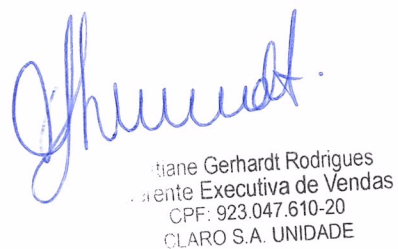 tiane Gerhardt Rodrigues
ente Executiva de Vendas
CPF: 923.047.610-20
CLARO S.A. UNIDADE